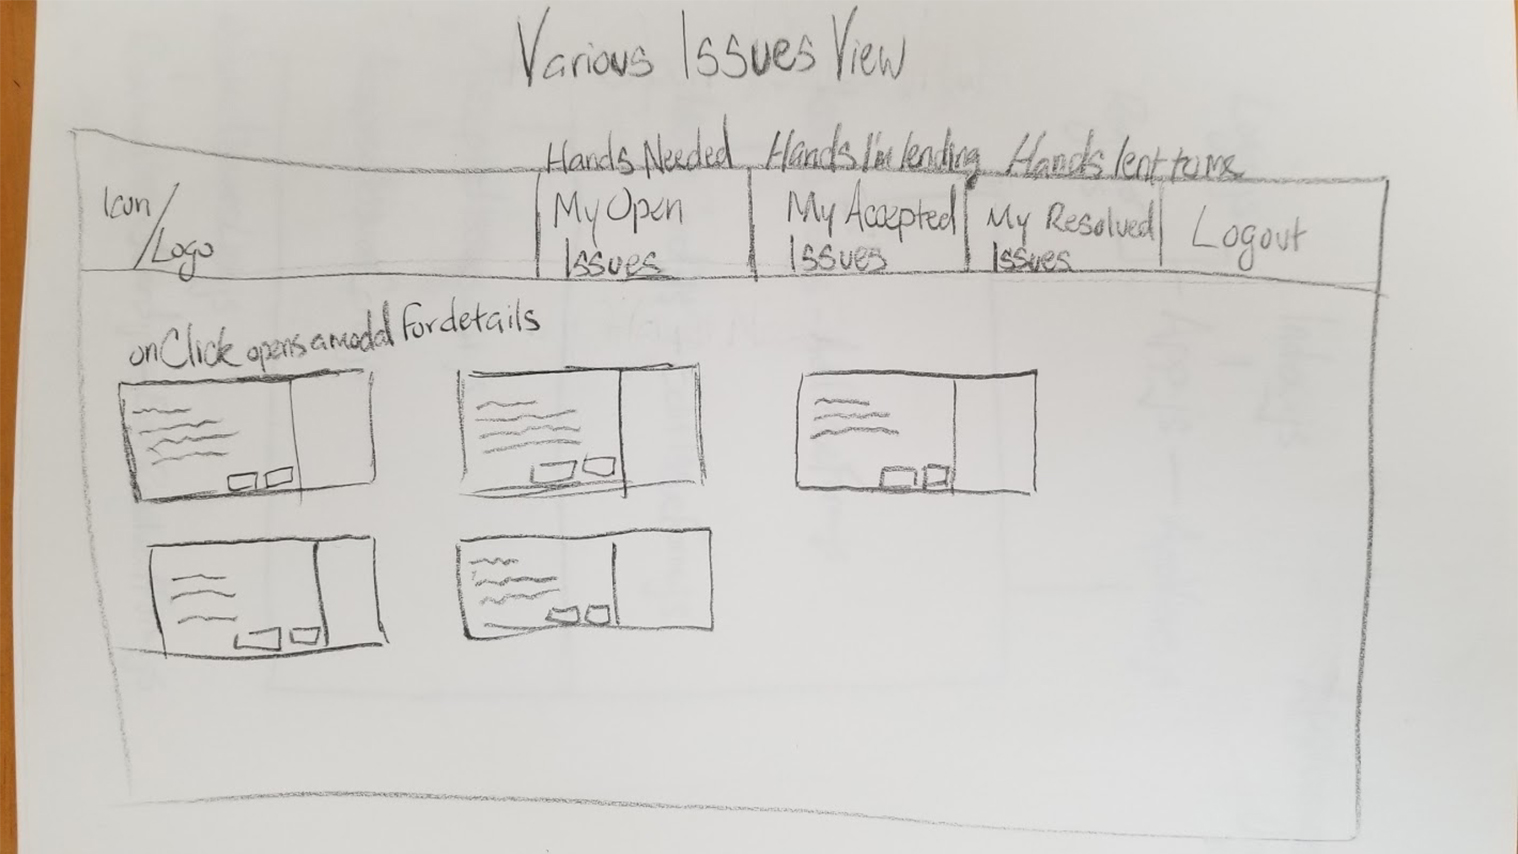 Various Issues View
Hands Needed Hands I'm lending Hands lent to me
Icon/
Logo
My Open
Issues
My Accepted
Issues
My Resolved
Issues
Logout
onClick opens a modal for details